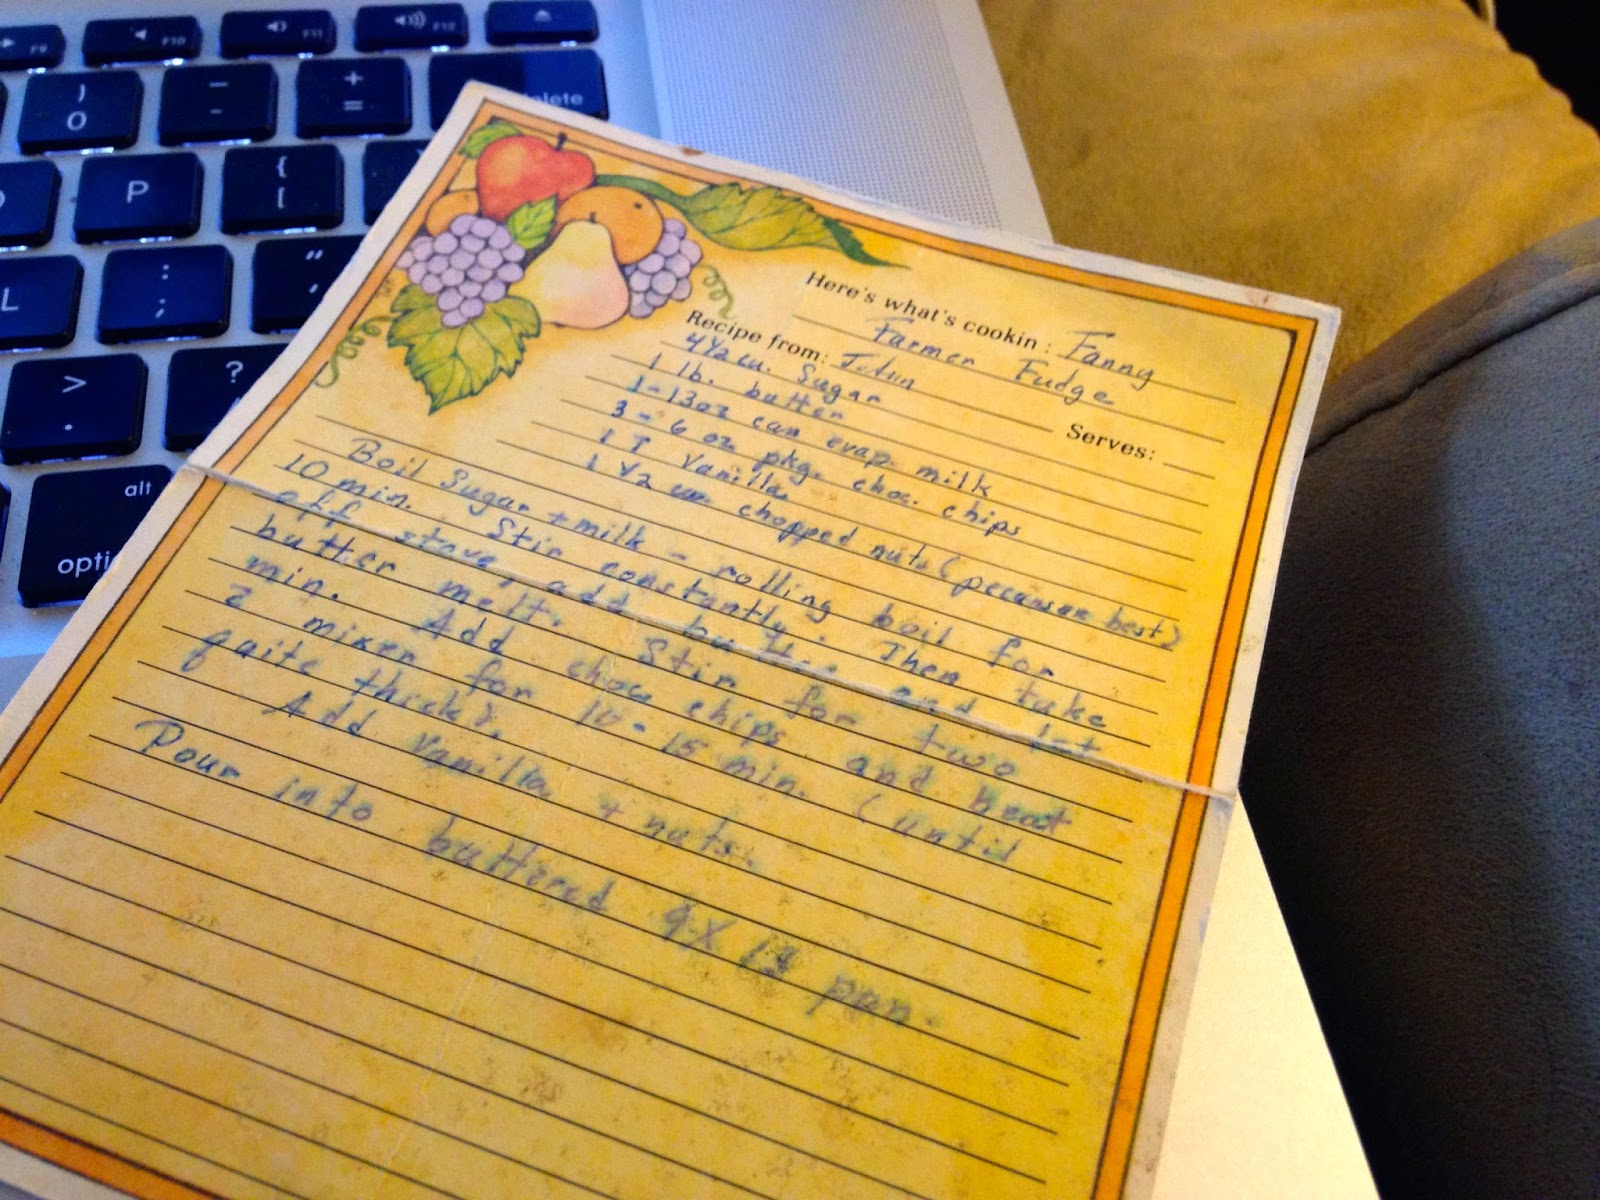 F9
F10
F11
F12
)
0
-
+
=
delete
P
{
[
L
:
;
"
,
>
.
?
alt
option
Here's what's cookin: Fanny
Farmer Fudge
Recipe from: Serves:
4 1/2 cu. Sugar
1 lb. butter
1-13oz can evap. milk
3-6 oz. pkg. choc. chips
1 T Vanilla
1 1/2 cu. chopped nuts (pecans are best)
Boil Sugar + milk - rolling boil for
10 min. Stir constantly. Then take
off stove, add butter and let
butter melt. Stir for two
min. Add choc chips and beat
z mixer for 10-15 min. (until
quite thick).
Add vanilla + nuts.
Pour into buttered 9 X pan.